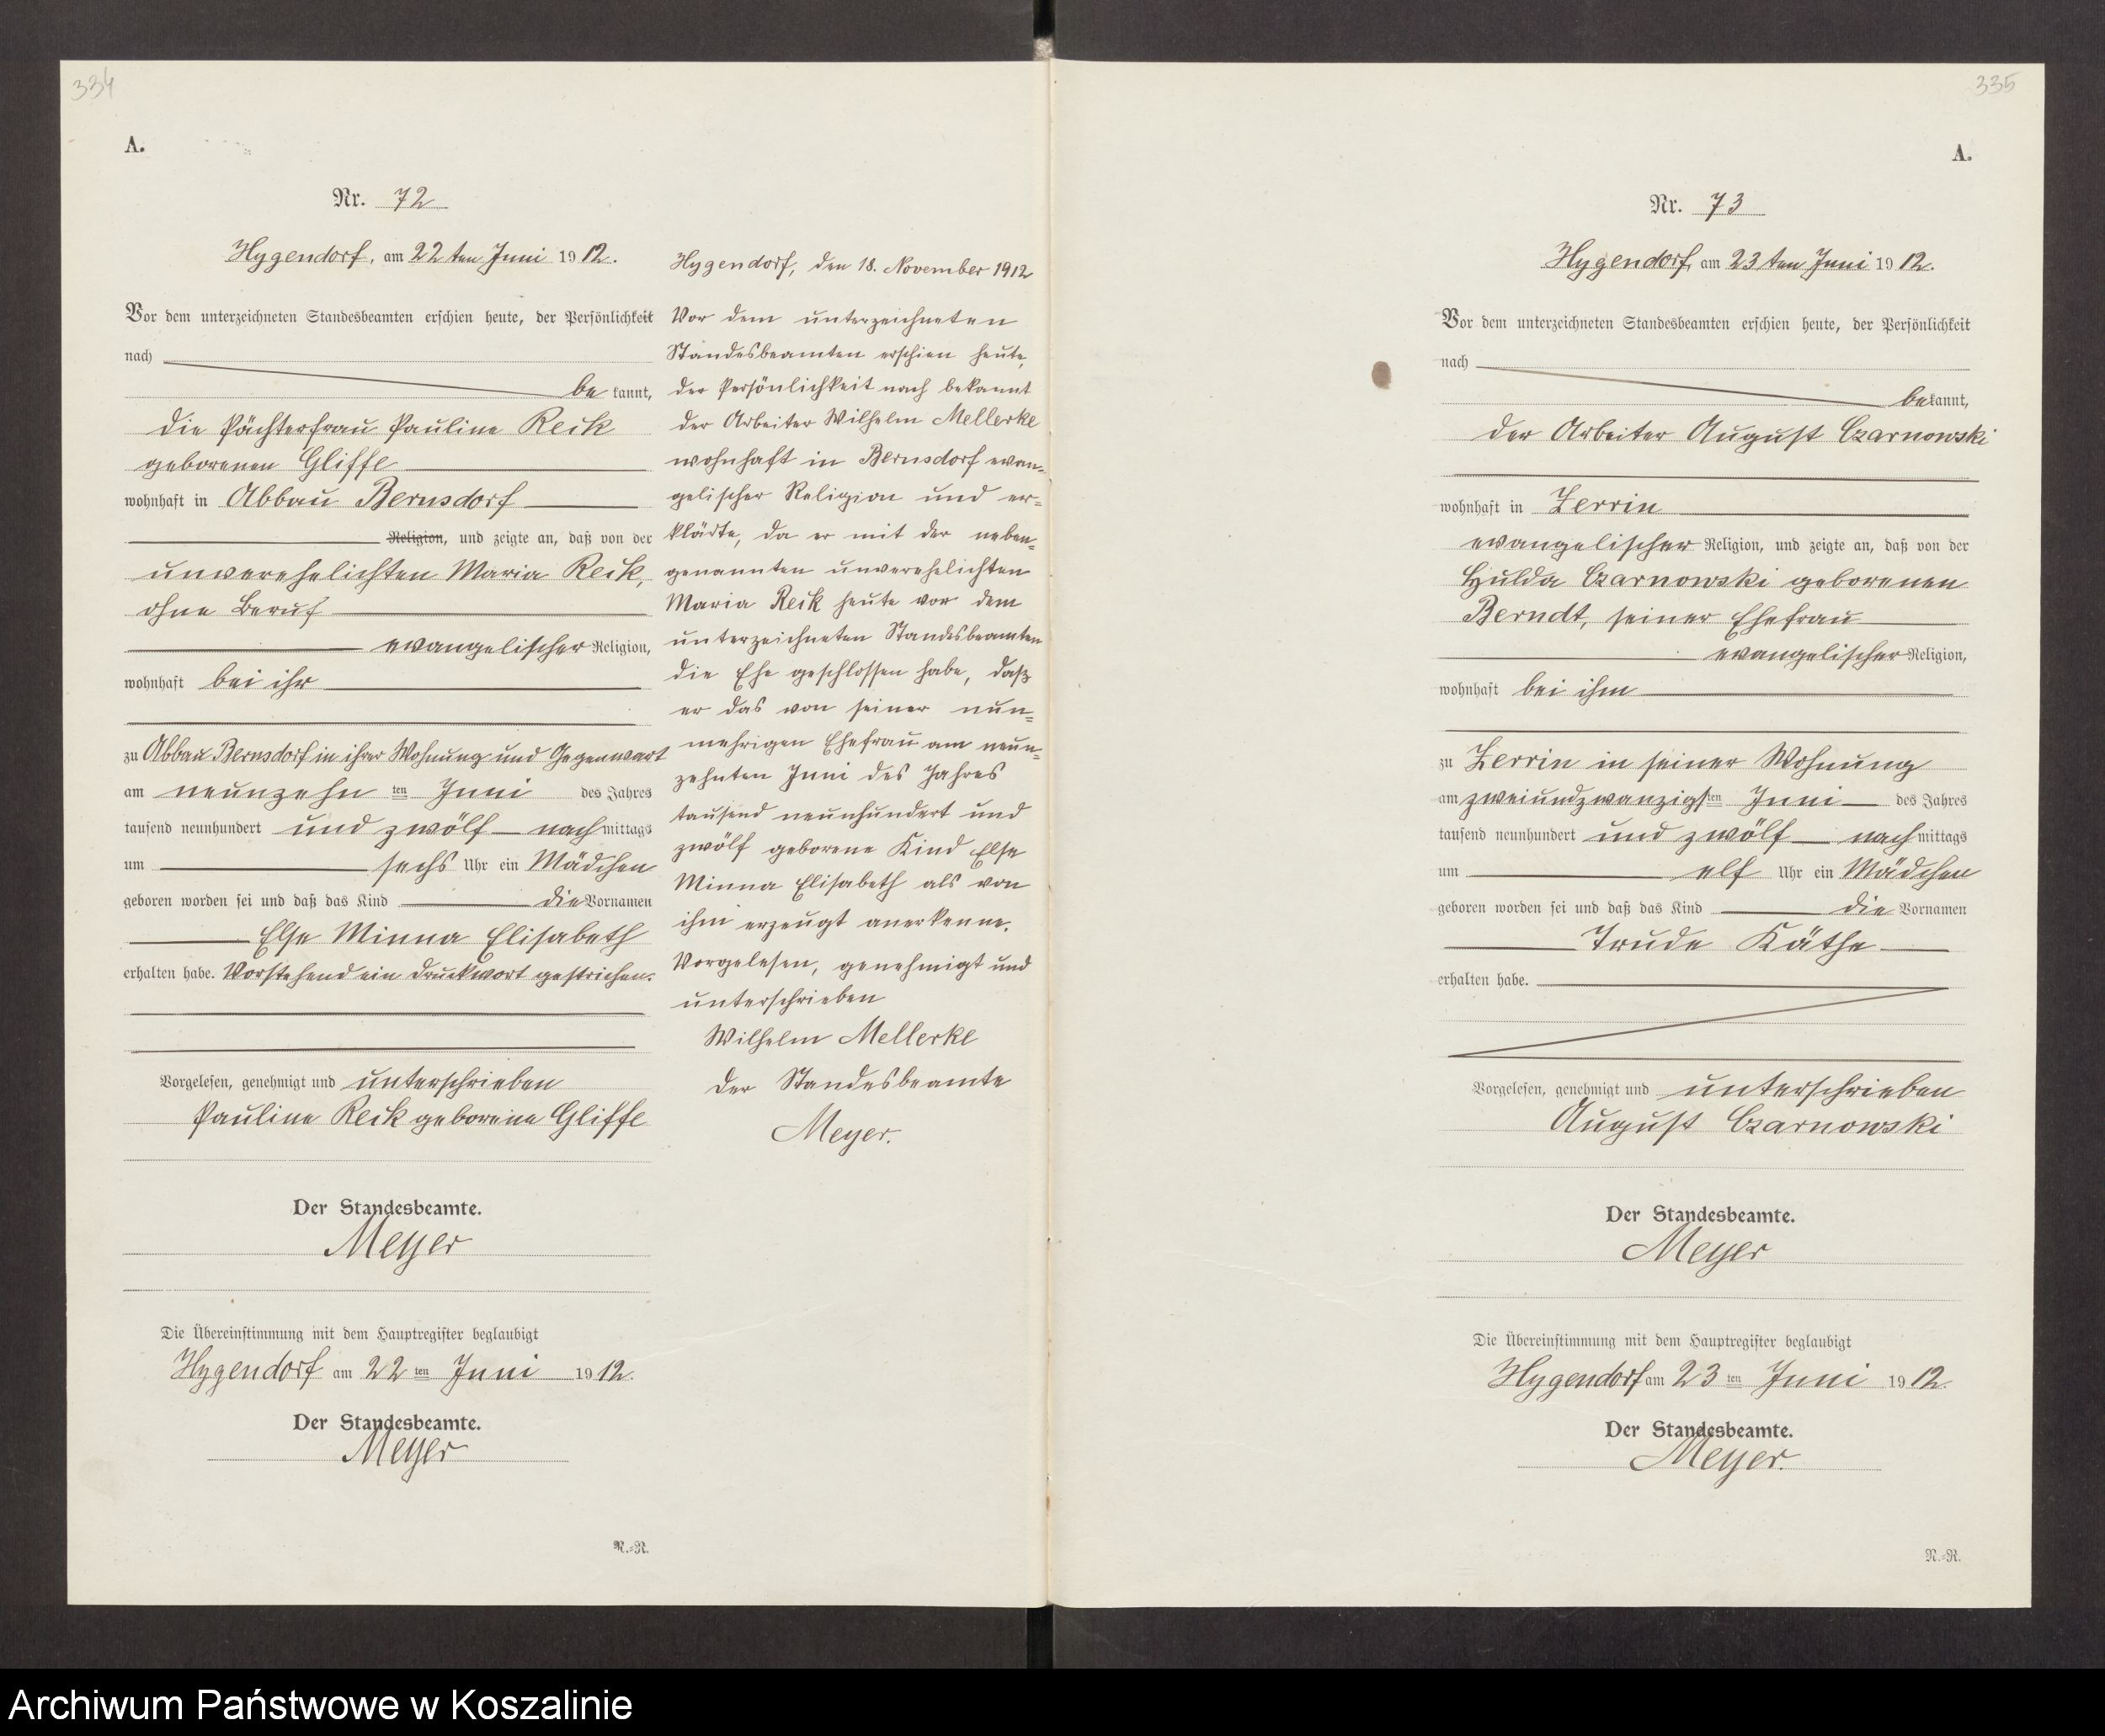 334
A.
Nr. 72
Hygendorf, am 22ten Juni 1912.
Vor dem unterzeichneten Standesbeamten erschien heute, der Persönlichkeit
nach
bekannt,
die Pächterfrau Pauline Reck
geborenen Gliffe
wohnhaft in Abbau Bernsdorf
Religion, und zeigte an, daß von der
unverehelichten Maria Reck,
ohne Beruf
evangelischer Religion,
wohnhaft bei ihr
zu Abbau Bernsdorf in ihrer Wohnung und Gegenwart
am neunzehnten Juni des Jahres
tausend neunhundert und zwölf nachmittags
um sechs Uhr ein Mädchen
geboren worden sei und daß das Kind die Vornamen
Else Minna Elisabeth
erhalten habe. Vorstehend ein Druckwort gestrichen.
Vorgelesen, genehmigt und unterschrieben
Pauline Reck geborene Gliffe
Der Standesbeamte.
Meyer
Die Übereinstimmung mit dem Hauptregister beglaubigt
Hygendorf am 22ten Juni 1912.
Der Standesbeamte.
Meyer
N.-R.
Hygendorf, den 18. November 1912
Vor dem unterzeichneten
Standesbeamten erschien heute,
der Persönlichkeit nach bekannt
der Arbeiter Wilhelm Mellerke
wohnhaft in Bernsdorf evan-
gelischer Religion und er-
klärte, da er mit der neben-
genannten unverehelichten
Maria Reck heute vor dem
unterzeichneten Standesbeamten
die Ehe geschlossen habe, daß
er das von seiner nun-
mehrigen Ehefrau am neun-
zehnten Juni des Jahres
tausend neunhundert und
zwölf geborene Kind Else
Minna Elisabeth als von
ihm erzeugt anerkenne.
Vorgelesen, genehmigt und
unterschrieben
Wilhelm Mellerke
Der Standesbeamte
Meyer.
335
A.
Nr. 73
Hygendorf, am 23ten Juni 1912.
Vor dem unterzeichneten Standesbeamten erschien heute, der Persönlichkeit
nach
bekannt,
der Arbeiter August Czarnowski
wohnhaft in Zerrin
evangelischer Religion, und zeigte an, daß von der
Hulda Czarnowski geborenen
Berndt, seiner Ehefrau
evangelischer Religion,
wohnhaft bei ihm
zu Zerrin in seiner Wohnung
am zweiundzwanzigsten Juni des Jahres
tausend neunhundert und zwölf nachmittags
um elf Uhr ein Mädchen
geboren worden sei und daß das Kind die Vornamen
Trude Käthe
erhalten habe.
Vorgelesen, genehmigt und unterschrieben
August Czarnowski
Der Standesbeamte.
Meyer
Die Übereinstimmung mit dem Hauptregister beglaubigt
Hygendorf am 23ten Juni 1912.
Der Standesbeamte.
Meyer.
N.-R.
Archiwum Państwowe w Koszalinie